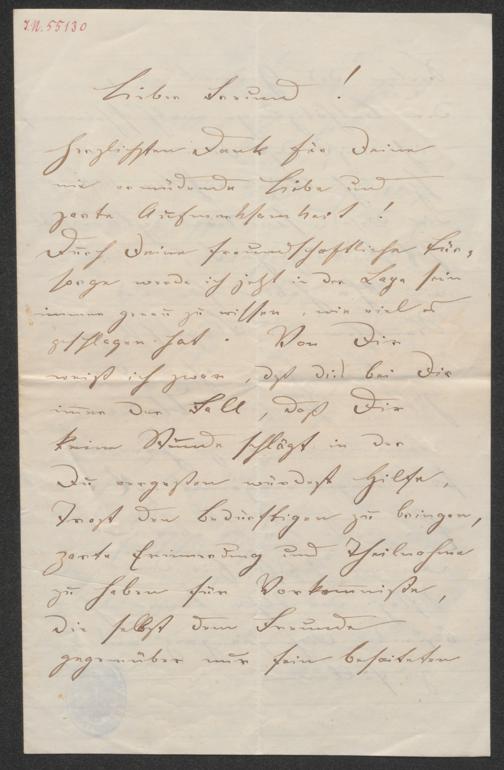 I.N. 55130
Lieber Freund!
Herzlichsten Dank für Deine
nie ermüdende Liebe und
zarte Aufmerksamkeit!
Durch Deine freundschaftliche Für-
sorge werde ich jetzt in der Lage sein
immer genau zu wissen, wie viel es
geschlagen hat. Von Dir
weiß ich zwar, daß dieß bei Dir
immer der Fall, daß Dir
keine Stunde schlägt in der
Du vergeßen würdest Hilfe,
Trost den Bedürftigen zu bringen,
zarte Erinnerung und Theilnahme
zu haben für Vorkommniße,
die selbst dem Freunde
gegenüber nur fein besaiteten